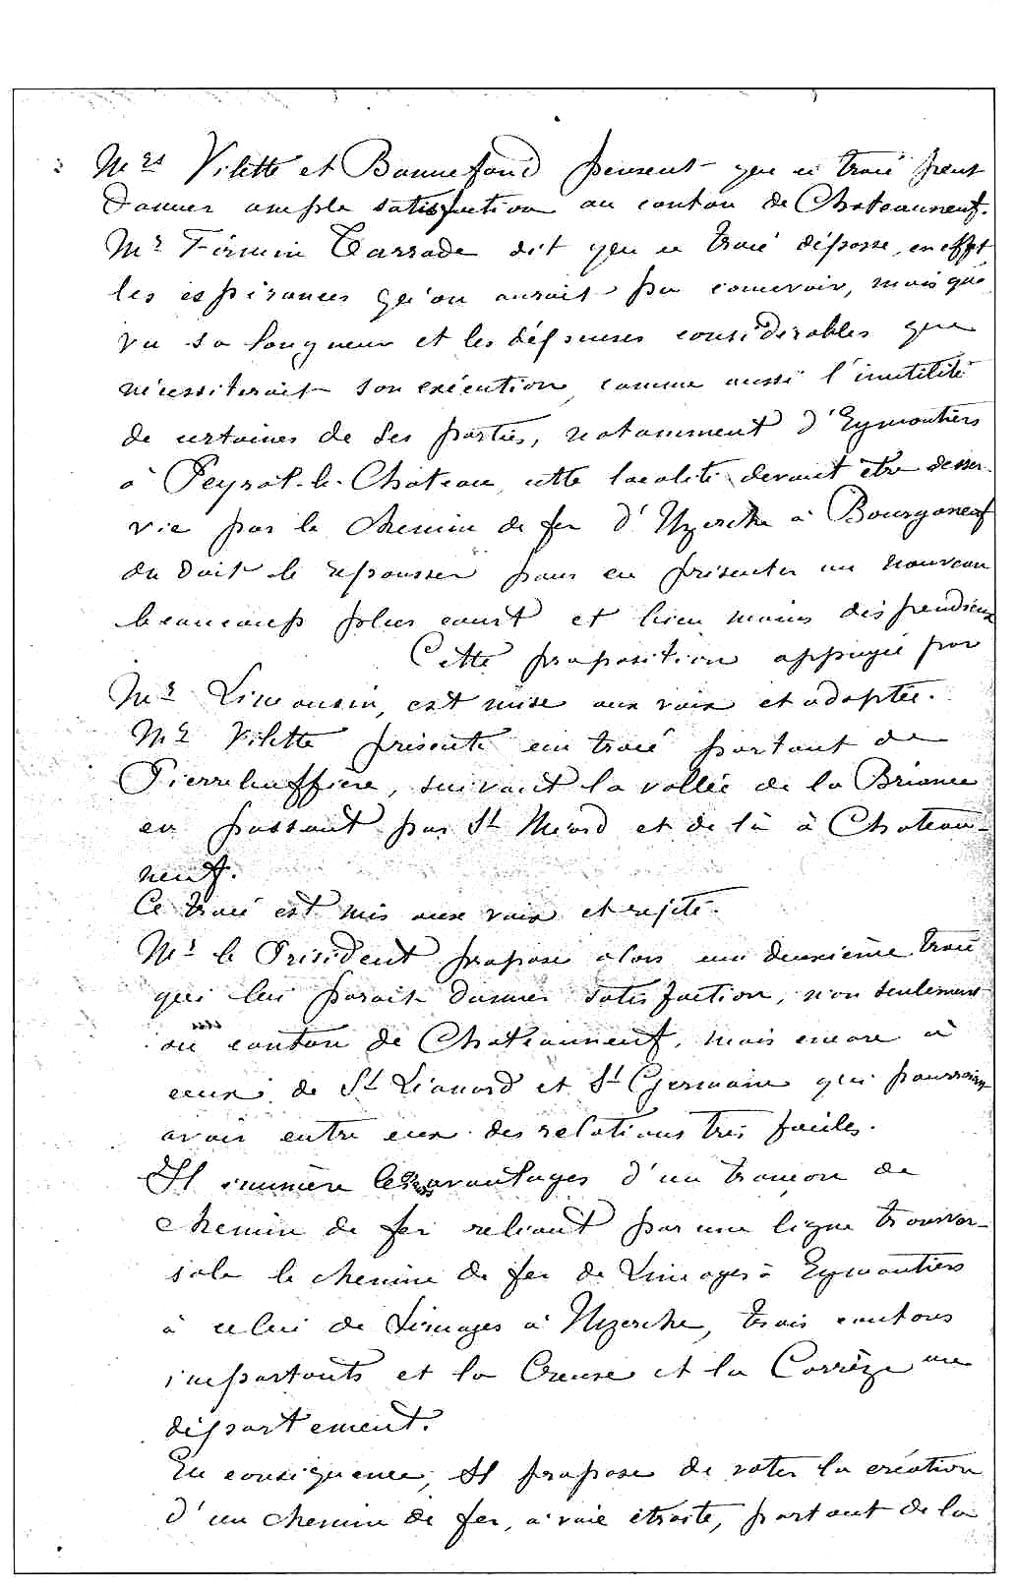 Mrs Vilette et Bonnefond pensent que ce tracé peut
donner ample satisfaction au canton de Chateauneuf.
Mr Firmin Tarrade dit que ce tracé dépasse, en effet,
les espérances qu'on aurait pu concevoir, mais que
vu sa longueur et les dépenses considérables que
nécessiterait son exécution, comme aussi l'inutilité
de certaines de ses parties, notamment d'Eymoutiers
à Peyrat-le-Château, cette localité devant être desser-
vie par le chemin de fer d'Uzerche à Bourganeuf
on doit le repousser pour en présenter un nouveau
beaucoup plus court et bien moins dispendieux
Cette proposition appuyée par
Mr Limousin, est mise aux voix et adoptée.
Mr Vilette présente un tracé partant de
Pierrebuffière, suivant la vallée de la Briance
en passant par St Méard et de là à Chateau-
neuf.
Ce tracé est mis aux voix et rejeté.
Mr le Président propose alors un deuxième tracé
qui lui parait donner satisfaction, non seulement
au canton de Chateauneuf, mais encore à
ceux de St Léonard et St Germain qui pourraient
avoir entre eux des relations très faciles.
Il énumère les avantages d'un tronçon de
chemin de fer reliant par une ligne transver-
sale le chemin de fer de Limoges à Eymoutiers
à celui de Limoges à Uzerche, trois cantons
importants et la Creuse et la Corrèze au
département.
En conséquence, Il propose de voter la création
d'un chemin de fer, à voie étroite, partant de la